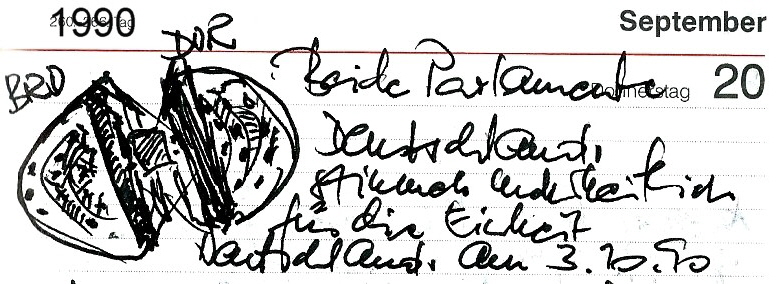 1990
September
DDR
BRD
Beide Parlamente
Donnerstag 20
Deutschlands
stimmen mehrheitlich
für die Einheit
Deutschlands am 3.10.90